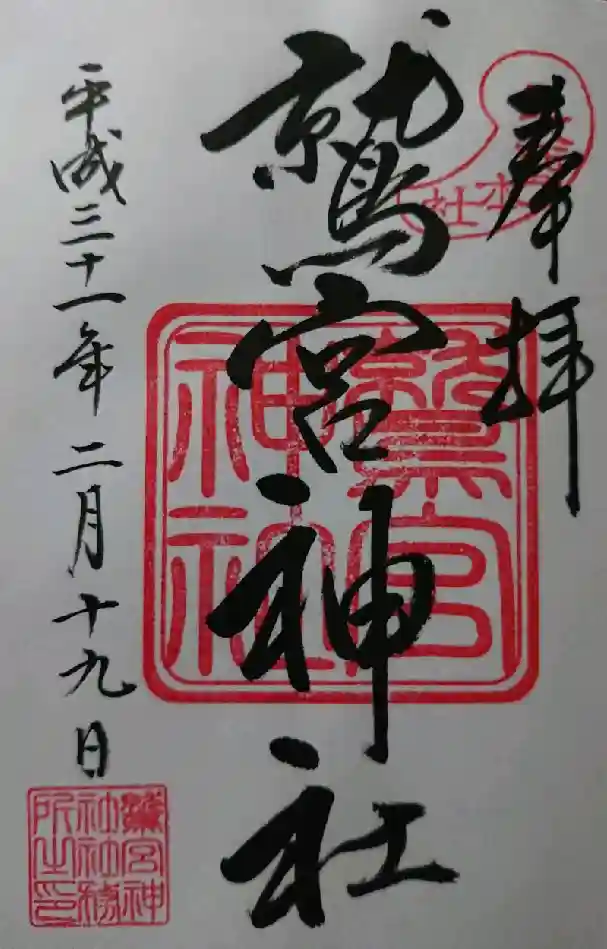 奉拝
鷲宮神社
平成三十一年二月十九日
鷲宮
神社
鷲宮神
社社務
所之印